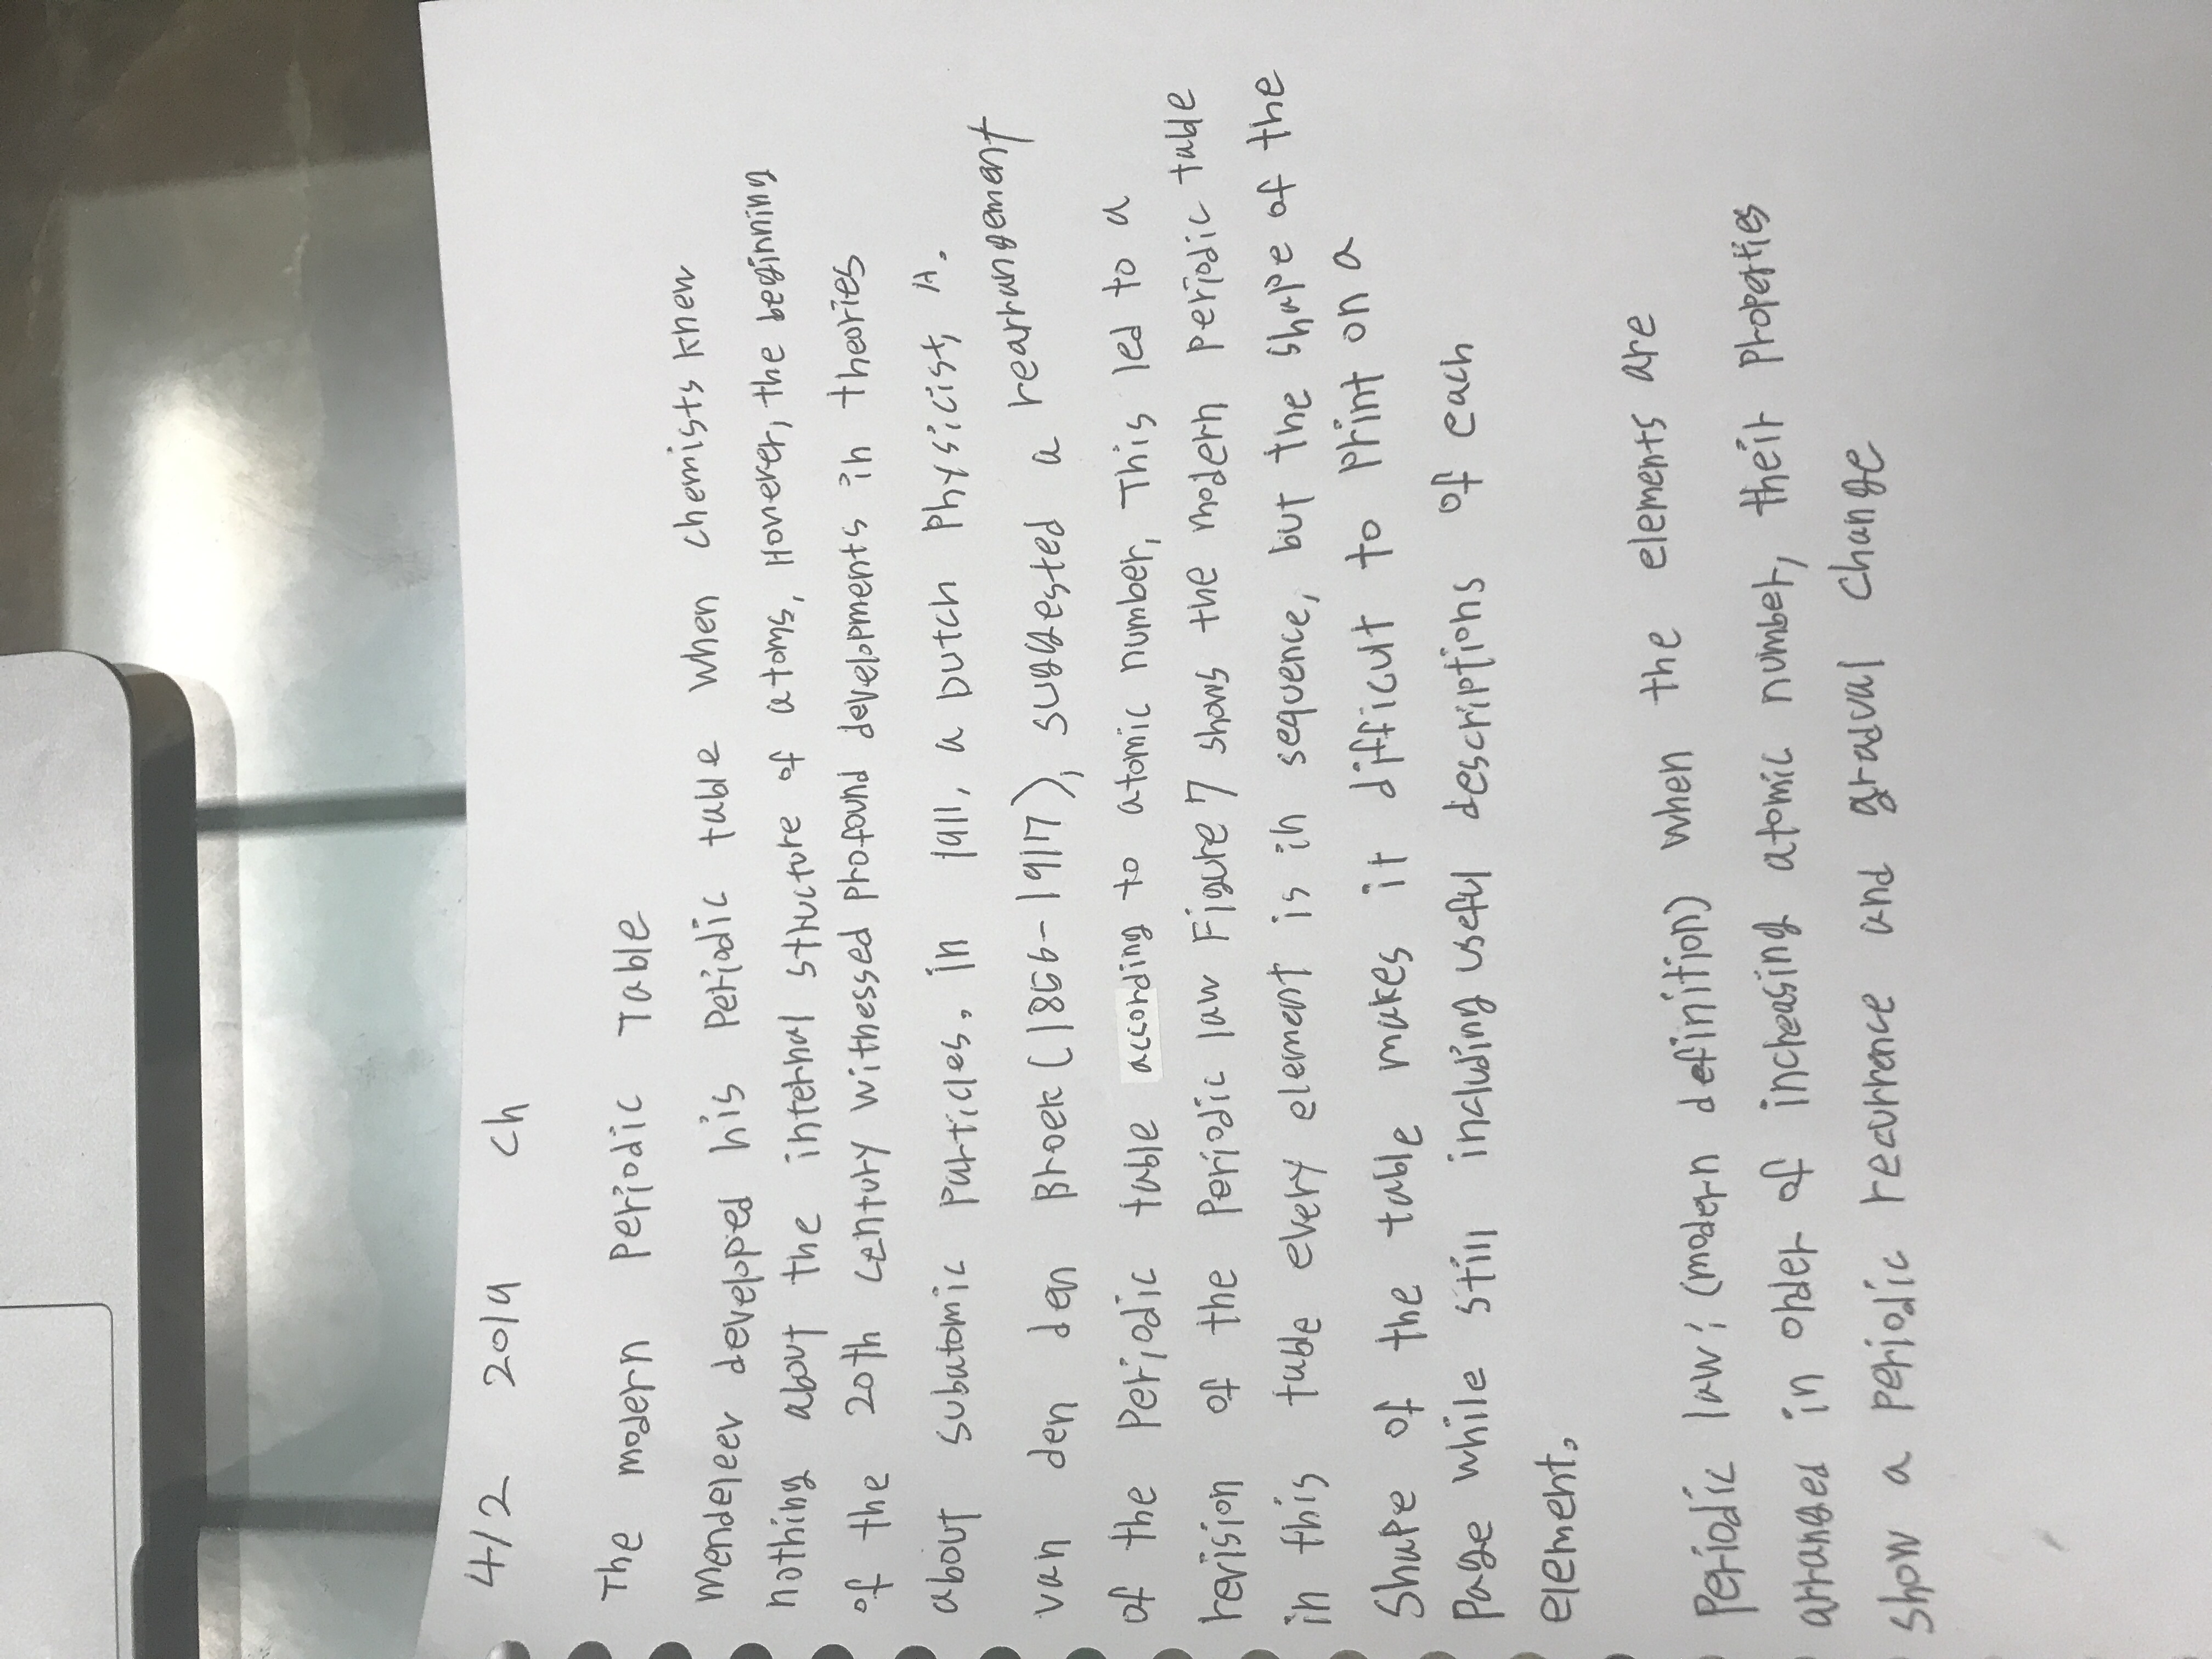 4/2 2019 ch
The modern Periodic Table
Mendeleev developed his Periodic table when chemists knew
nothing about the internal structure of atoms, However, the beginning
of the 20th century witnessed profound developments in theories
about subatomic particles, in 1911, a Dutch Physicist, A.
van den den Broek (1856-1917), suggested a rearrangement
of the Periodic table according to atomic number, This led to a
revision of the Periodic law Figure 7 shows the modern periodic table
in this table every element is in sequence, but the shape of the
Shape of the table makes it difficult to print on a
Page while still including useful descriptions of each
element,
Periodic law; (modern definition) when the elements are
arranged in order of increasing atomic number, their Properties
show a periodic recurrence and gradual change